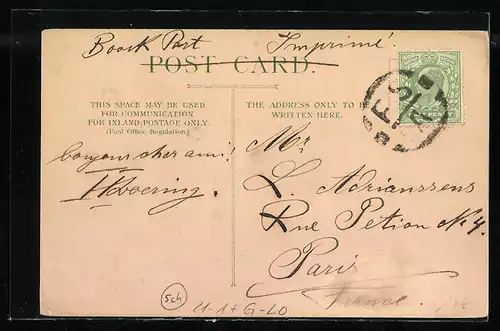 Book Post Imprimé
POST CARD.
THIS SPACE MAY BE USED
FOR COMMUNICATION
FOR INLAND POSTAGE ONLY.
(Post Office Regulation.)
THE ADDRESS ONLY TO BE
WRITTEN HERE.
bonjour cher ami!
Mr.
L. Adrianssens
Rue Petion No 4.
Paris
5ch
21-1+G-LO